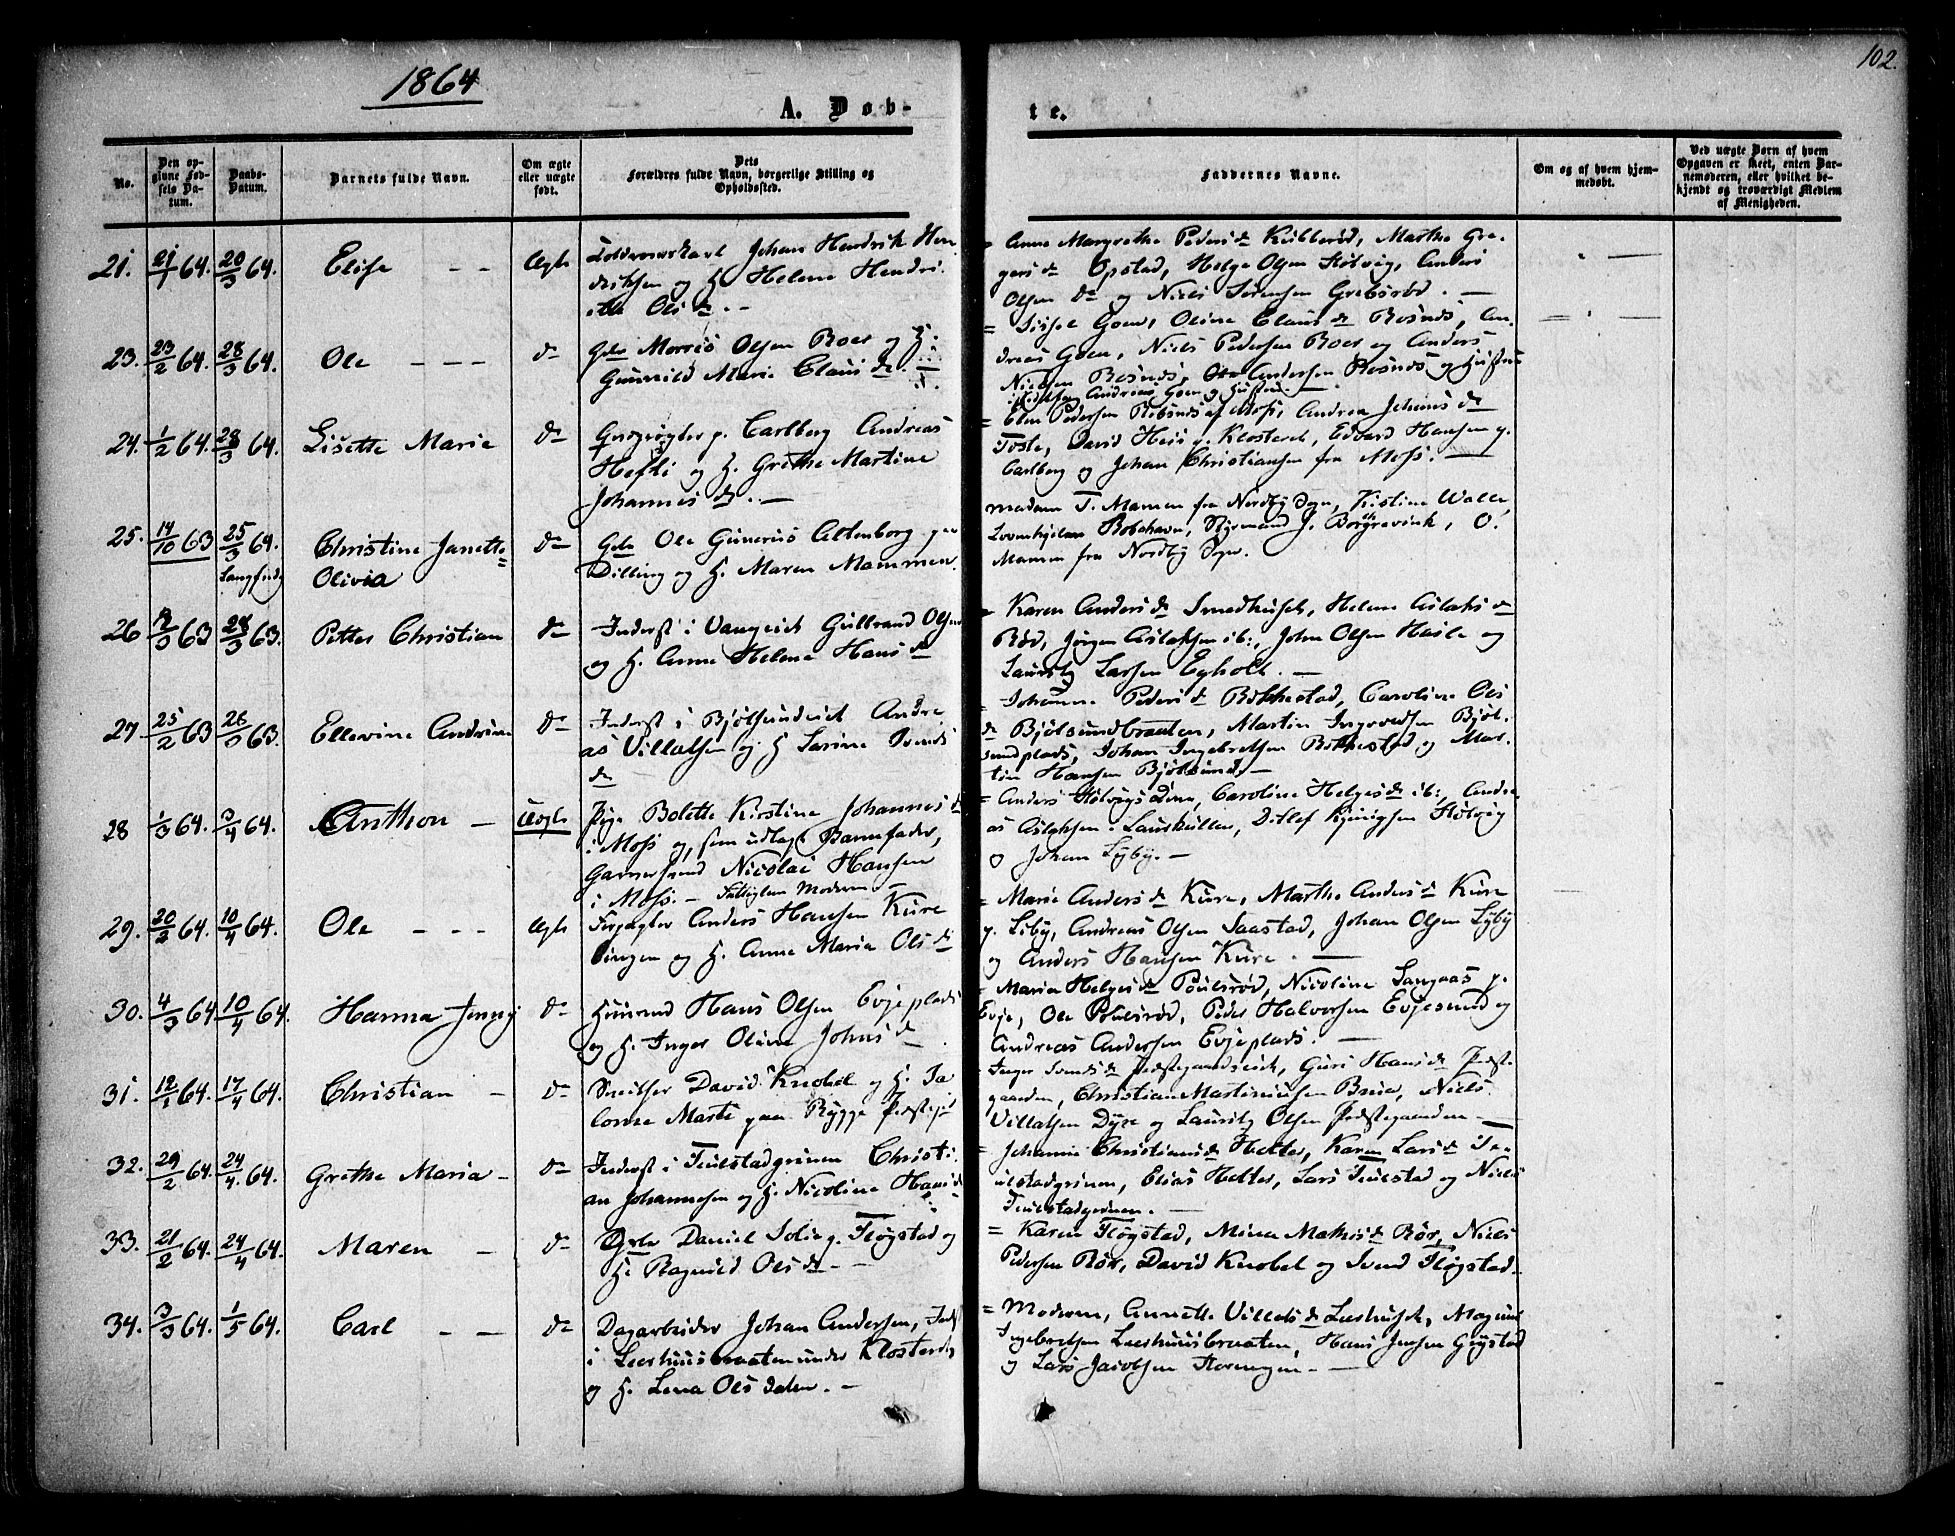 1864
102.
A. Døb-
te.
No.
Den op-
givne Fød-
sels Da-
tum.
Daabs-
Datum.
Barnets fulde Navn.
Om ægte
eller uægte
født.
Dets
Forældres fulde Navn, borgerlige Stilling og
Opholdssted.
Faddernes Navne.
Om og af hvem hjem-
medøbt.
Ved uægte Børn af hvem
Opgaven er skeet, enten Bar-
nemoderen, eller hvilket be-
kjendt og troværdigt Medlem
af Menigheden.
21. 21/1 64. 20/3 64. Elise - - Ægte
Johan Hendrik Hen
driksen og H. Helene Hendri-
Ols d. -
= Anne Margrethe Peders d Kubberød, Marthe Gre-
gers d Opstad, Helge Olsen Støtvig, Anders
Olsen do og Niels Sørensen Grebsrød. -
23. 23/2 64. 28/3 64. Ole - - - do
Gds Morris Olsen Roer og H.
Gunnild Marie Claus d.
= Sissel Goen, Oline Claus d Rosnes, An-
dreas Goen, Niels Pedersen Roer og Anders
Nielsen Rosnes, Andersen Rosnes og Hustru
Andreas Goen og Hustru.
24. 1/2 64. 28/3 64. Lisette Marie do
p. Carlberg Andreas
Hefti og H. Grethe Martine
Johannes d. -
= Elen Pedersen af Moss, Andrea Johanes d
Tosle, David p. Klosteret, Edvard Hansen p.
Carlberg og Johan Christiansen fra Moss. -
25. 14/10 63 25/3 64. Langfredag
Christine Janette
Olivia
do
Gds Ole Gunerius Altenborg paa
Dilling og H. Maren Mammen.
madam T. Mammen fra Nordby Sogn, Kistine Walle,
Styrmand J. Borgrevink, O.
Mamen fra Nordby Sogn.
26 2/3 63 28/3 63. Petter Christian do
Inderst i Vangeiet Gulbrand Olsen
og H. Anne Helene Hans d
= Karen Anders d Smedhuset, Helene Aslaks d
Rød, Jørgen Aslaksen ib:, John Olsen Hasle og
Lauritz Larsen Egholt. -
27. 25/2 63 26/3 63. Ellevine Andrine do
Inderst i Bjølsundeiet Andre
as Villatsen og H Sarine Svends
d
- Johanne Peders d Rokkestad, Caroline Ols
d Bjølsundbraaten, Martin Ingvedsen Bjøl-
sundplads, Johan Ingebretsen Rokkestad og Mar-
tin Hansen Bjølsund. -
28 1/3 64. 3/4 64. Anthon - Uægte
Pige Bolette Kirstine Johannes d
i Moss og, som udlagt Barnefader,
Garversvend Nicolai Hansen
i Moss. -
= Anders Støtvigs Dine, Caroline Helges d ib:, Andre
as Aslaksen Laurkullen, Ditlef Støtvig
og Johan Lyby. -
29. 20/2 64. 10/4 64. Ole - - - Ægte
Forpagter Anders Hansen Kure
og H. Anne Maria Ols d
= Marie Anders d Kure, Marthe Anders d Kure
p. Liby, Andreas Olsen Saastad, Johan Olsen Lyby
og Anders Hansen Kure. -
30. 4/3 64 10/4 64. Hanna Jenny do
Huusmand Hans Olsen Evjeplads
og H. Inger Oline Johns d
- Maria Helges d Poulsrød, Nicoline Langaas p.
Evje, Ole Poulsrød, Peder Halvorsen Evjesund og
Andreas Andersen Evjeplads. -
31. 12/1 64. 17/4 64. Christian - do
David Knobel og H. Sa
lome Marti paa Rygge Præstegd
Inger Svends d Præstegaardseiet, Guri Hans d Præste-
gaarden, Christian Martiniusen Brue, Niels
Villatsen Dyre og Lauritz Olsen Præstegaarden -
32. 29/2 64. 24/4 64. Grethe Maria - do
Inderst i Teulstadgrinen Christi
an Johannesen og H. Nicoline Hans d
= Johanne Christians d Hetter, Karen Lars d Te-
ulstadgrinen, Elias Hetter, Lars Teulstad og Niels
Teulstadgrinen. -
33. 21/2 64. 24/4 64. Maren - do
Daniel p. Fløgstad og
H. Ragnild Ols d -
= Karen Fløgstad, Mina Mathis d Rør, Niels
Pedersen Rør, David Knobel og Svend Fløgstad.
34. 3/3 64. 1/5 64. Carl - - do
Dagarbeider Johan Andersen, Inds
i Leerhuusbraaten under Klosteret,
og H. Lena Olsdaten. -
= Moderen, Annette Villats d Leerhuset, Magnus
Ingebretsen Leerhuusbraaten, Hans Jensen Gipstad
og Lars Jacobsen Florengen -